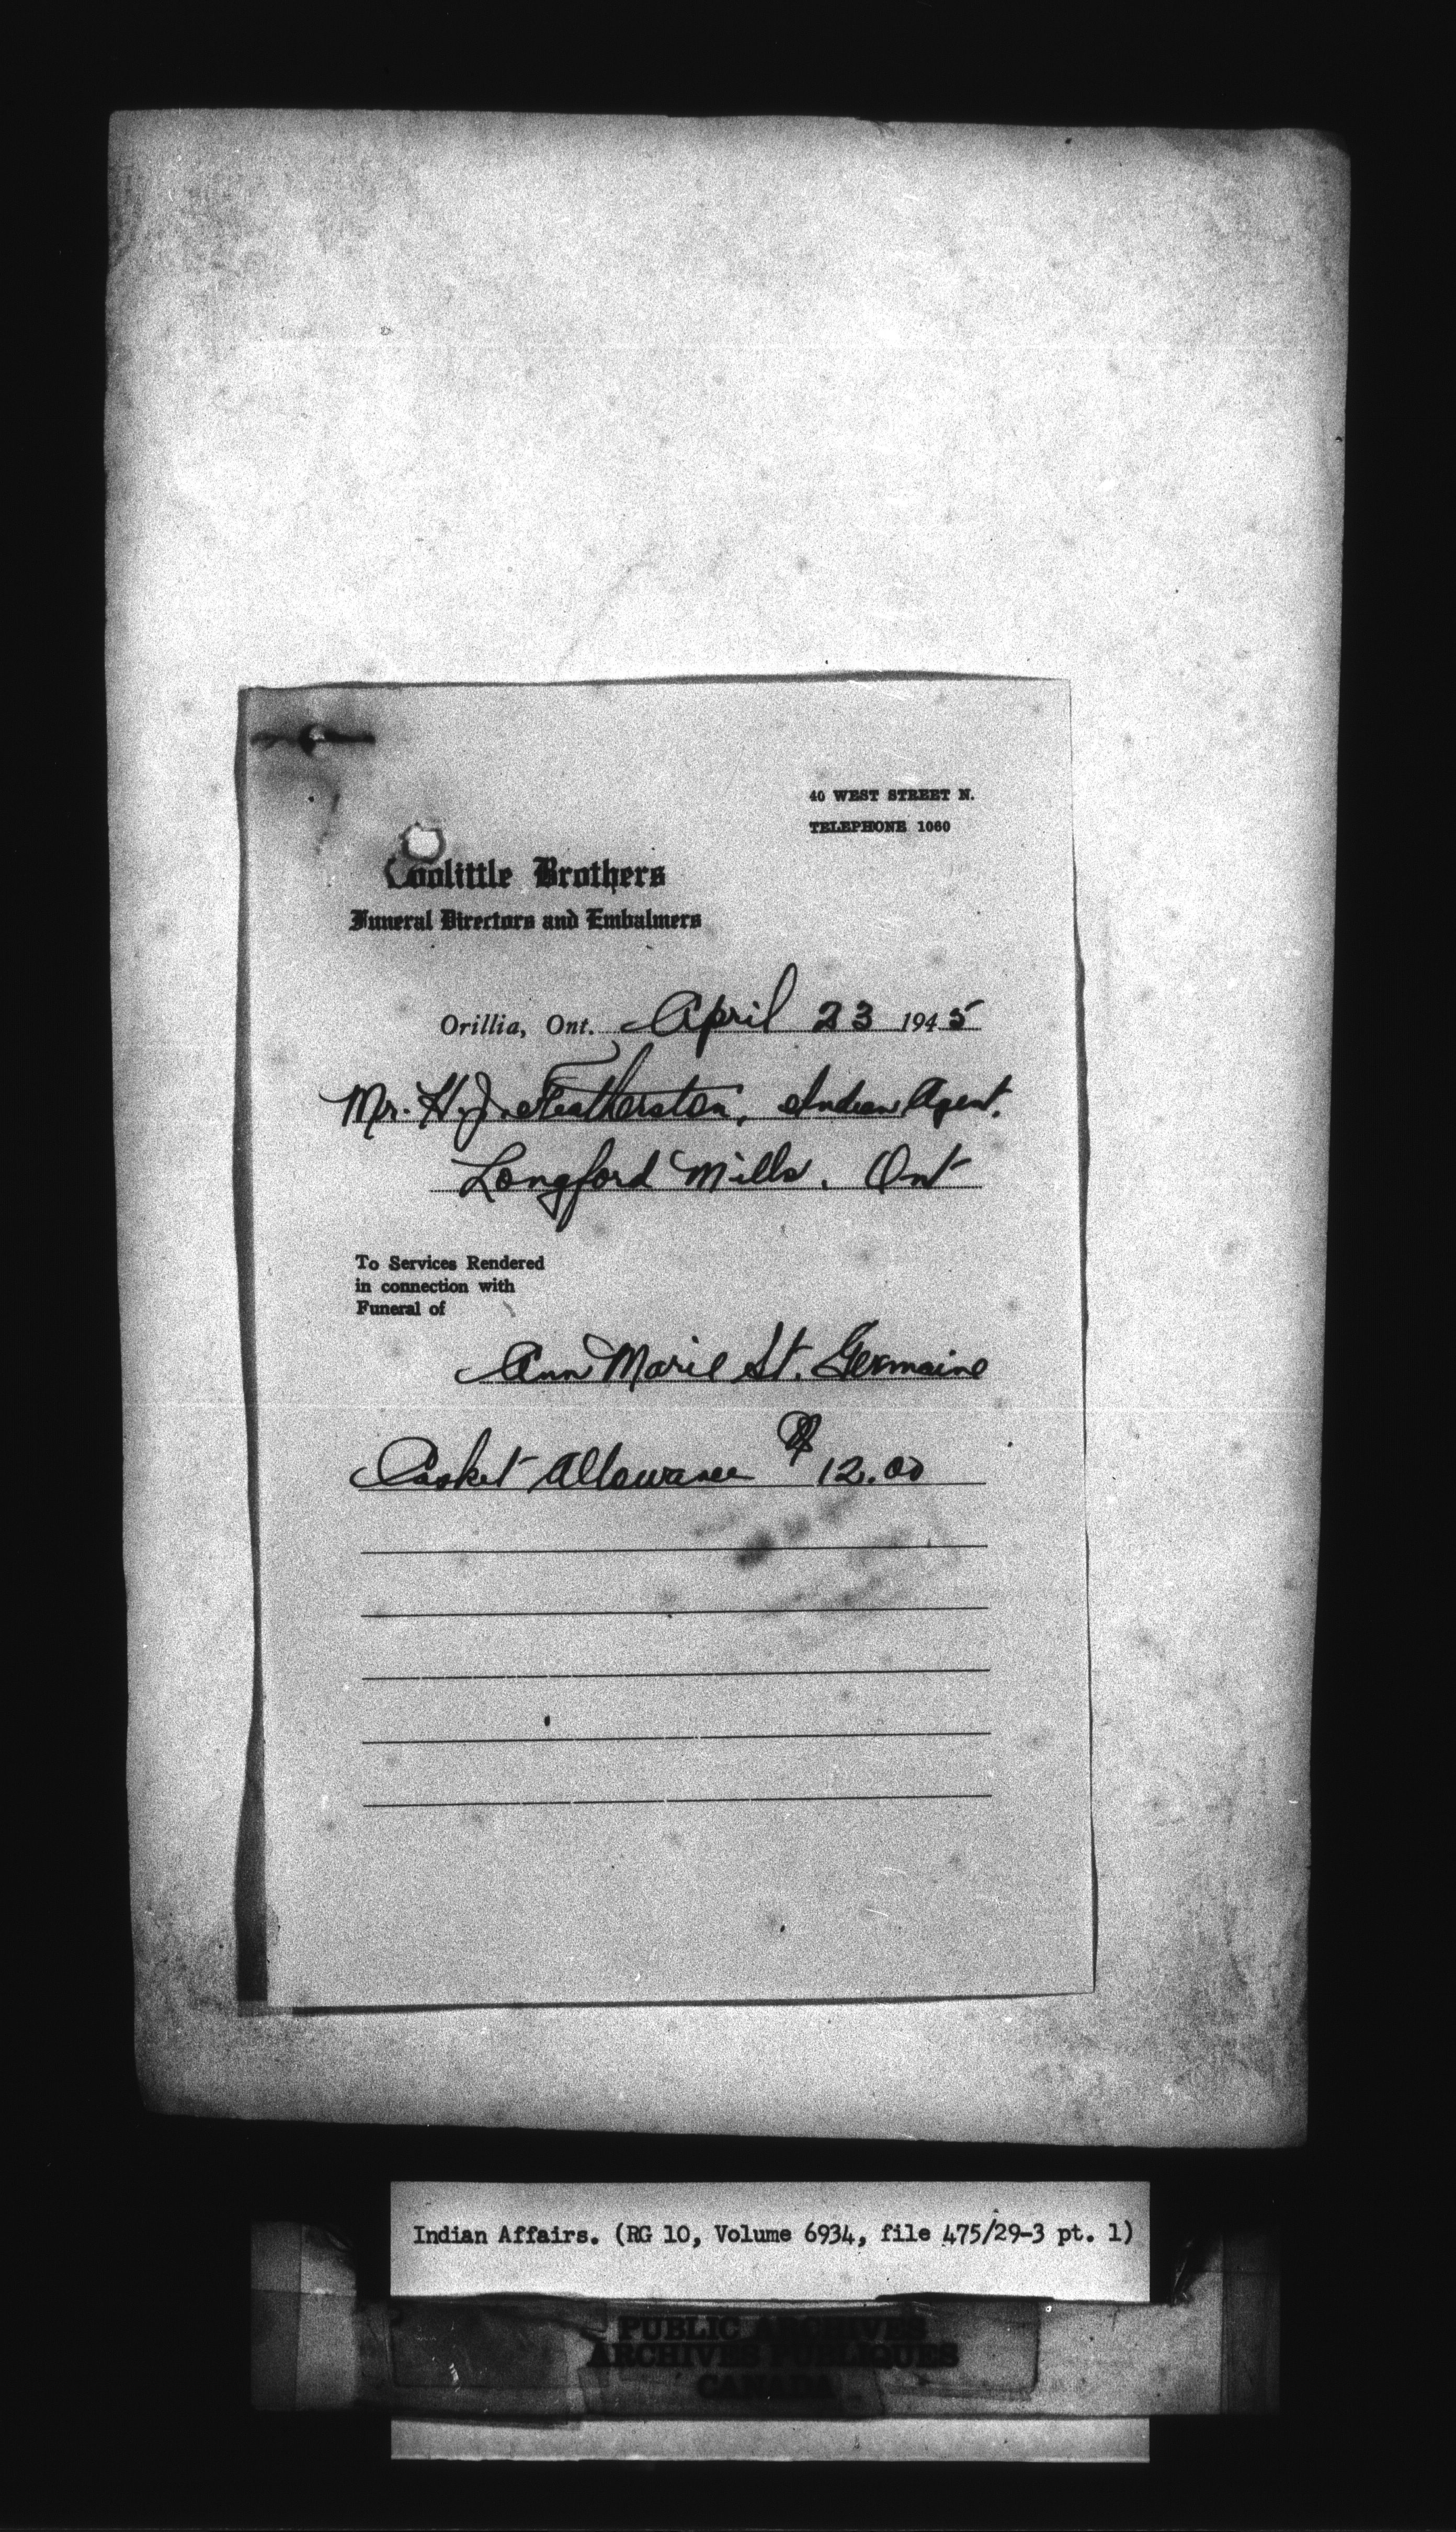 40 WEST STREET N.
TELEPHONE 1060
Doolittle Brothers
Funeral Directors and Embalmers
Orillia, Ont. April 23 1945
Mr. H. J. Featherston, Indian Agent.
Longford Mills. Ont
To Services Rendered
in connection with
Funeral of
Ann Marie St. Germaine
Casket Allowance $12.00
Indian Affairs. (RG 10, Volume 6934, file 475/29-3 pt. 1)
PUBLIC ARCHIVES
ARCHIVES PUBLIQUES
CANADA